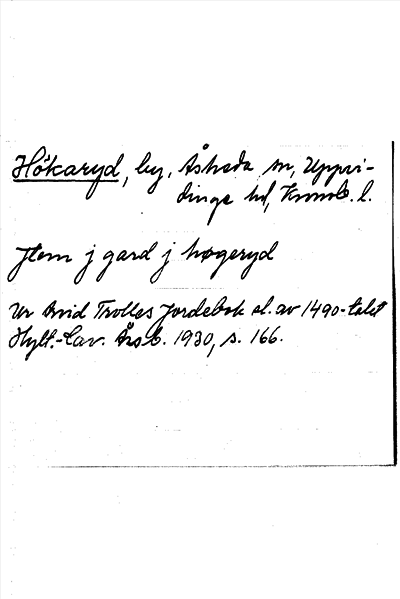 Hökaryd, by, Åsheda sn, Uppvi-
dinge hd, Kronob. l.
Jtem j gard j høgeryd
Ur Arvid Trolles Jordebok sl. av 1490-talet
Hylt.-Cav. Årsb. 1930, s. 166.